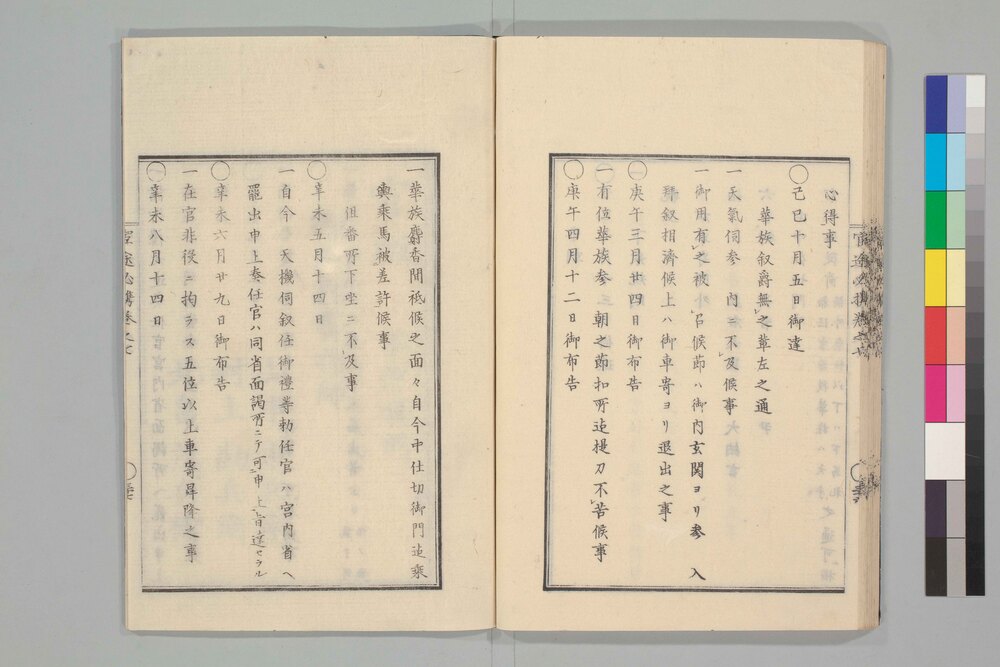 心得事
○己巳十月五日御達
華族叙爵無之輩左之通
一天氣伺參 內ニ不及候事
一御用有之被召候節ハ御內玄関ヨリ參 入
拜叙相濟候上ハ御車寄ヨリ退出之事
○庚午三月廿四日御布告
一有位華族參 朝之節扣所迠提刀不苦候事
○庚午四月十二日御布告
一華族麝香間祗候之面々自今中仕切御門迠乘
輿乘馬被差許候事
但番所下坐ニ不及事
○辛未五月十四日
一自今 天機伺叙任御禮等勅任官ハ宮內省ヘ
罷出申上奏任官ハ同省面謁所ニテ可申上旨達セラル
○辛未六月廿九日御布告
一在官非役ニ拘ラス五位以上車寄昇降之事
○辛未八月十四日
官途必携卷之七